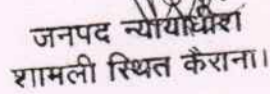 जनपद न्यायाधीश
शामली स्थित कैराना।